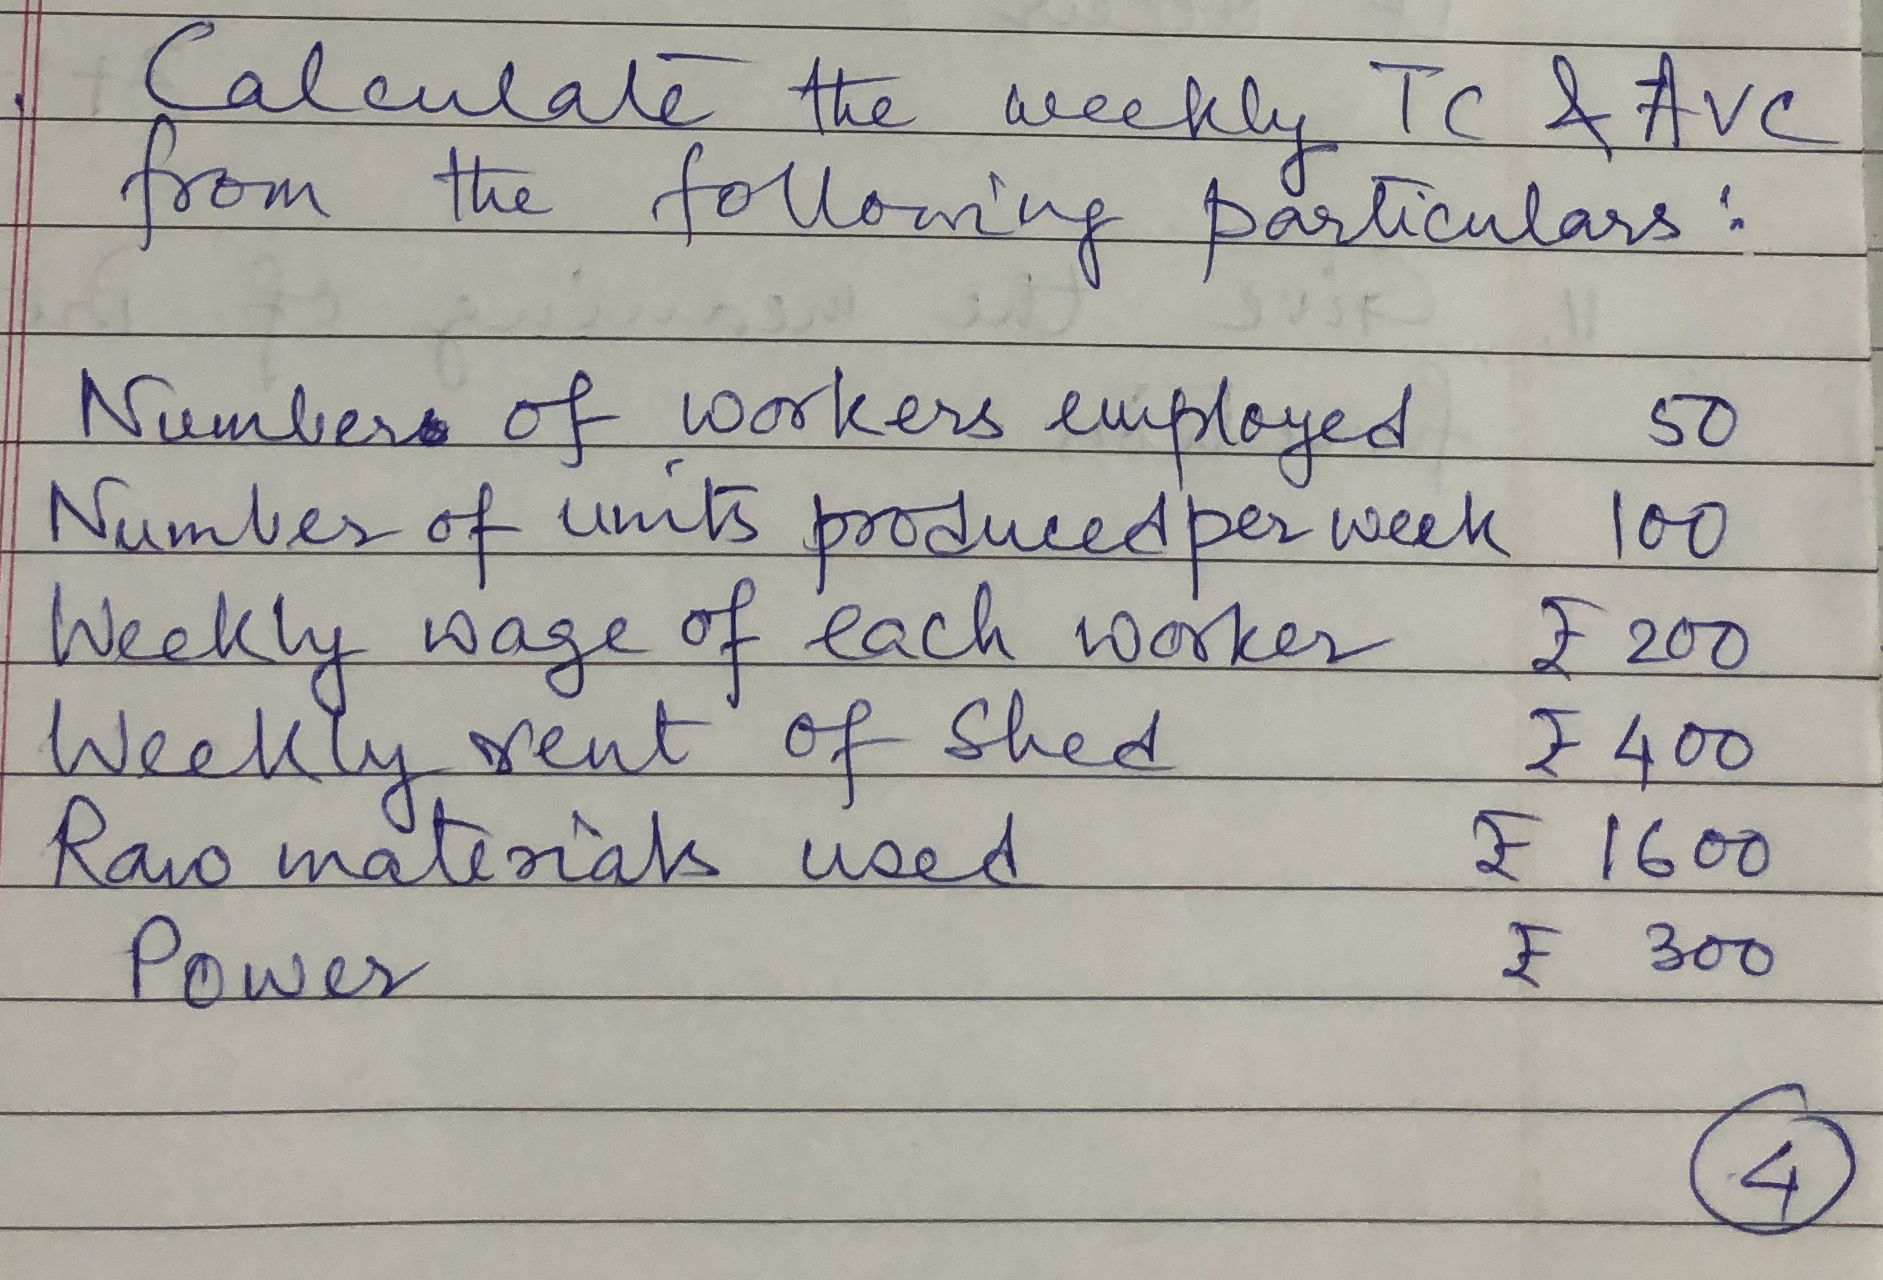 Calculate the weekly TC & AVC
from the following particulars :
Number of workers employed 50
Number of units produced per week 100
Weekly wage of each worker ₹ 200
Weekly rent of Shed ₹ 400
Raw materials used ₹ 1600
Power ₹ 300
4